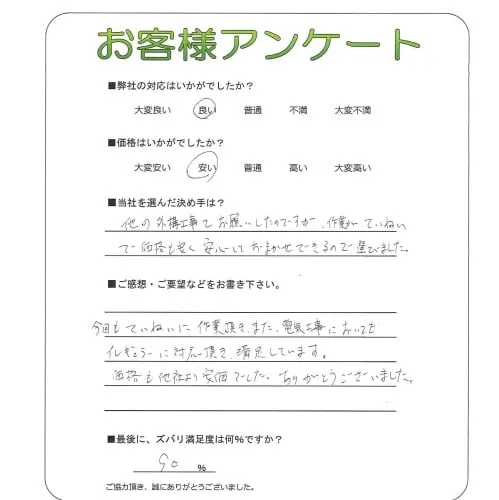 お客様アンケート
■弊社の対応はいかがでしたか?
大変良い 良い 普通 不満 大変不満
■価格はいかがでしたか?
大変安い 安い 普通 高い 大変高い
■当社を選んだ決め手は?
他の外構工事でお願いしたのですが、作業がていねい
で価格も安く安心しておまかせできるので選びました。
■ご感想・ご要望などをお書き下さい。
今回もていねいに作業頂き、また、電気工事においても
イレギュラーに対応頂き、満足しています。
価格も他社より安価でした。ありがとうございました。
■最後に、ズバリ満足度は何%ですか?
90 %
ご協力頂き、誠にありがとうございました。